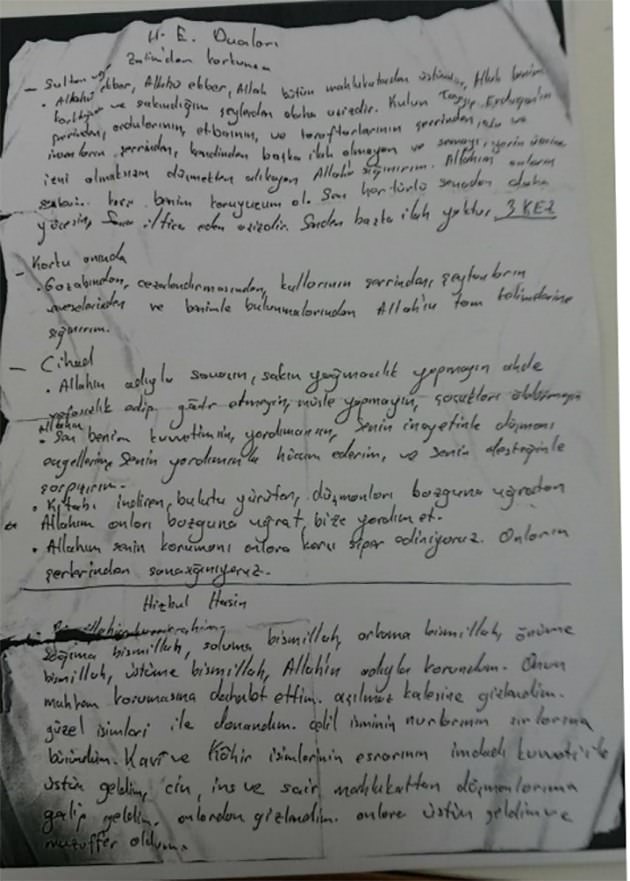 H. E. Duaları
Zalimden korkunca
- Sultan
• Allahü ekber, Allahü ekber, Allah bütün mahlukatından üstündür, Allah benim
korktuğum ve sakındığım şeylerden daha azizdir. Kulun Tayyip Erdoğan'ın
şerrinden, ordularının, etbaının, ve taraftarlarının şerrinden, cin ve
insanların şerrinden, kendinden başka ilah olmayan ve semayı, yerin üzerine
izni olmaksızın düşmekten alıkoyan Allah'a sığınırım. Allahım onların
karşı benim koruyucum ol. Sen her türlü senadan daha
yücesin, Sana iltica eden azizdir. Senden başka ilah yoktur. 3 KEZ
- Korku anında
• Gazabından, cezalandırmasından, kullarının şerrinden, şeytanların
vesveselerinden ve benimle bulunmalarından Allah'ın tam kelimelerine
sığınırım.
- Cihad
• Allahın adıyla savaşın, sakın yağmacılık yapmayın ahde
vefasızlık edip gadr etmeyin, müsle yapmayın, çocukları öldürmeyin
Allahım
• Sen benim kuvvetimsin, yardımcımsın, Senin inayetinle düşmanı
engellerim, Senin yardımınla hücum ederim, ve senin desteğinle
çarpışırım.
• Kitabı indiren, bulutu yürüten, düşmanları bozguna uğratan
Allahım onları bozguna uğrat, bize yardım et.
• Allahım senin korumanı onlara karşı siper ediniyoruz. Onların
şerlerinden sana sığınıyoruz.
Hizbul Hasin
• Bismillahirrahmanirrahim
Sağıma bismillah, soluma bismillah, arkama bismillah, önüme
bismillah, üstüme bismillah, Allah'ın adıyla korundum. Onun
muhkem korumasına dehalet ettim. açılmaz kalesine gizlendim.
güzel isimleri ile donandım. celil isminin nurlarının sırlarına
büründüm. Kavi ve Kâhir isimlerinin esrarının imdadı kuvveti ile
üstün geldim, cin, ins ve sair mahlukattan düşmanlarıma
galip geldim. onlardan gizlendim. onlara üstün geldim ve
muzaffer oldum.